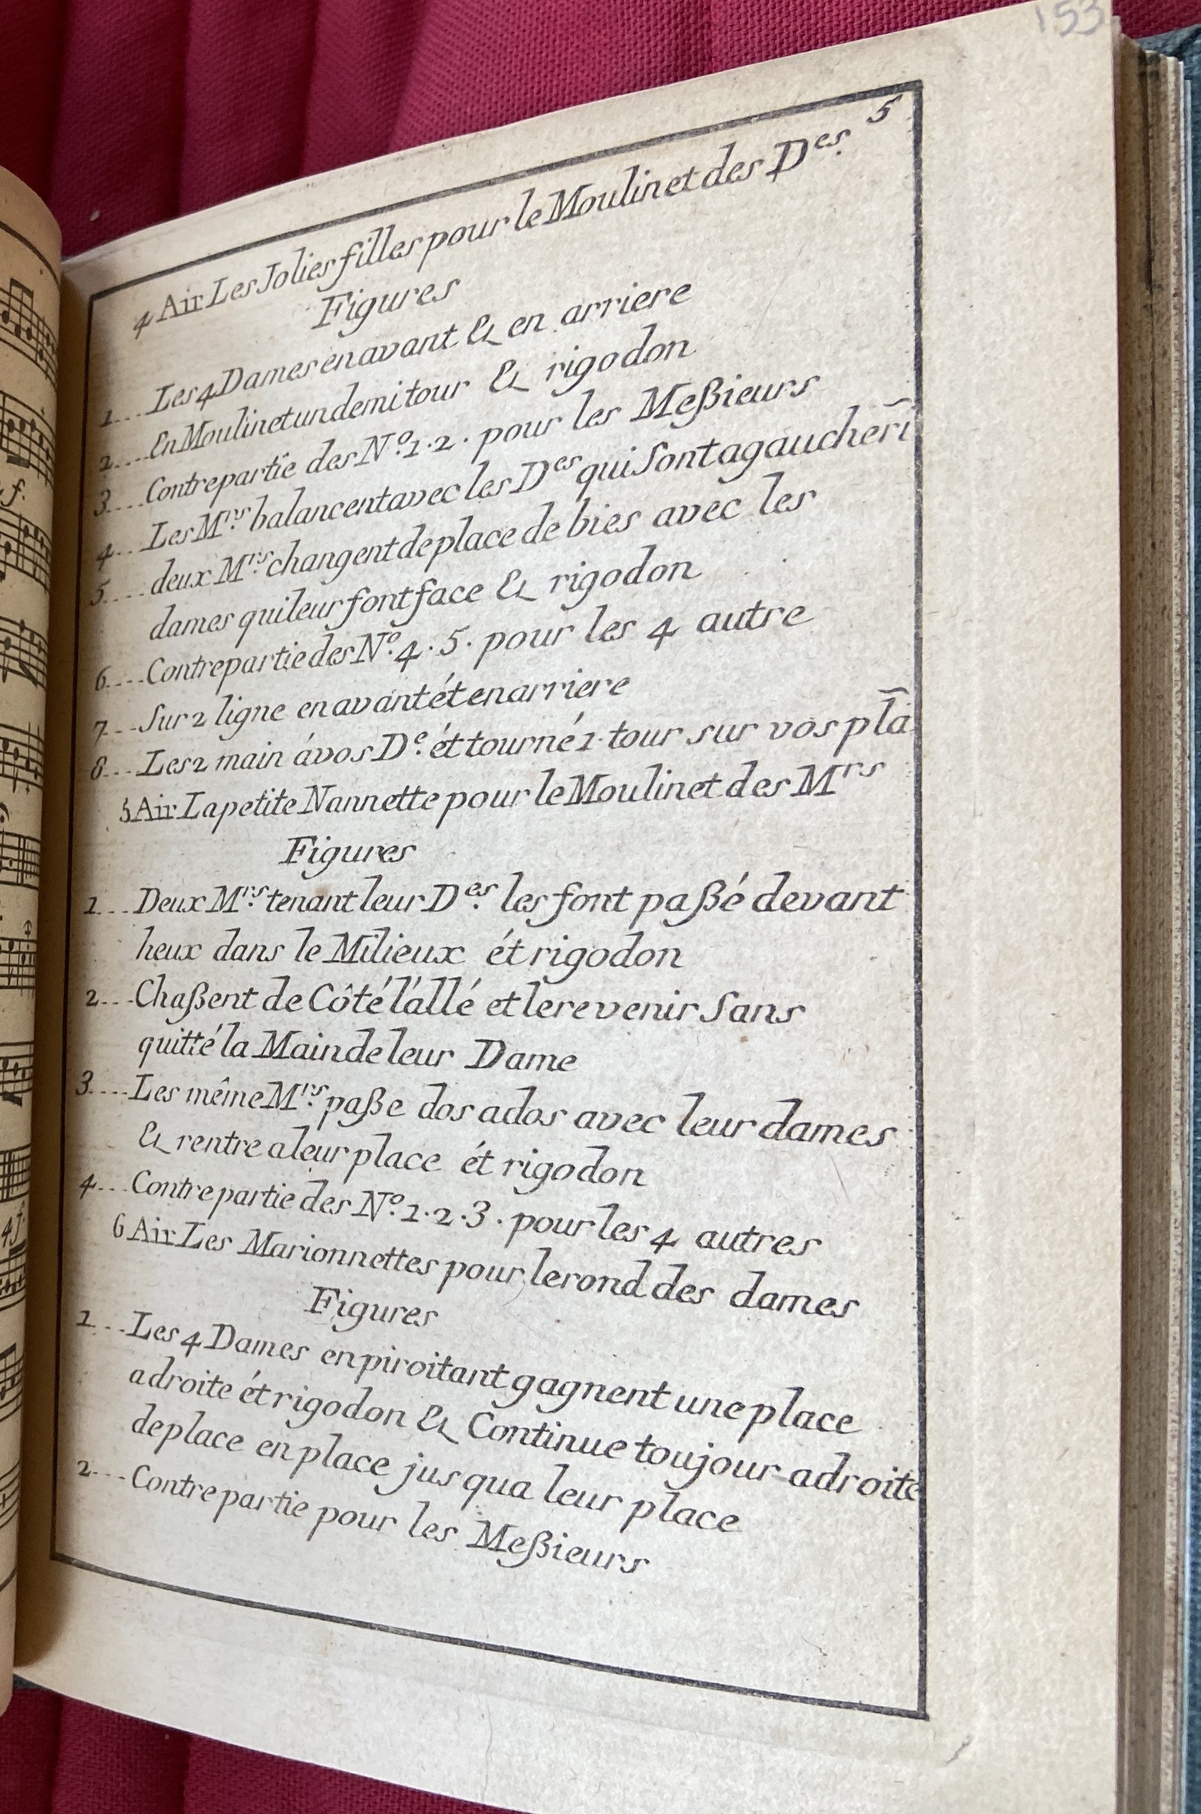 153
5
4 Air Les Jolies filles pour le Moulinet des D.es
Figures
1.... Les 4 Dames en avant & en arriere
2.... En Moulinet un demi tour & rigodon
3.... Contrepartie des N.o 1.2. pour les Meßieurs
4... Les M.rs balancent avec les D.es qui sont a gauche r̃i
5.... deux M.rs changent de place de bies avec les
dames qui leur font face & rigodon
6.... Contrepartie des N.o 4.5. pour les 4 autre
7... Sur 2 ligne en avant ét en arriere
8... Les 2 main á vos D.e ét tourné 1 tour sur vos pl̃a
5 Air La petite Nannette pour le Moulinet des Mrs
Figures
1... Deux M.rs tenant leur D.es les font paßé devant
heux dans le Milieux ét rigodon
2... Chaßent de Côté l'allé et le revenir Sans
quitté la Main de leur Dame
3.... Les même M.rs paße dos a dos avec leur dames
& rentre a leur place ét rigodon
4... Contrepartie des N.o 1.2.3. pour les 4 autres
6 Air Les Marionnettes pour le rond des dames
Figures
1... Les 4 Dames en piroitant gagnent une place
a droite ét rigodon & Continue toujour a droite
de place en place jus qua leur place
2... Contre partie pour les Meßieurs